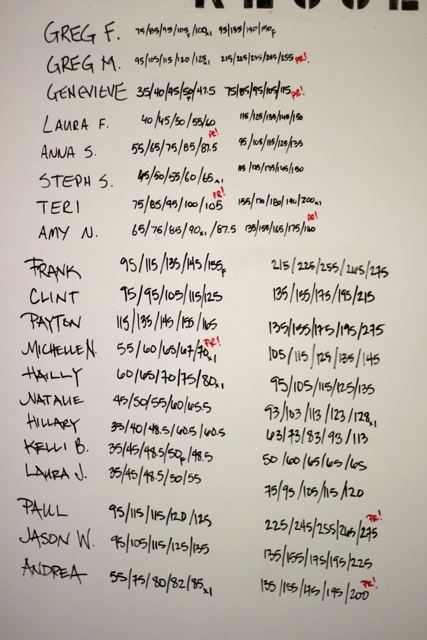 GREG F. 75/85/95/105F/100x1 95/135/190/150F
GREG M. 95/105/115/120/125 215/225/235/245/255 PR!
GENEVIEVE 35/40/45/50/47.5 75/85/95/105/115 PR!
LAURA F. 40/45/50/55/60 115/125/135/145/150
ANNA S. 55/65/75/85/87.5 PR! 95/105/115/125/135
STEPH S. 45/50/55/60/65x1 115/125/135/145/150
TERI 75/85/95/100/105 PR! 155/170/180/190/200x1
AMY N. 65/76/85/90x1/87.5 135/155/165/175/180 PR!
FRANK 95/115/135/145/155F 215/225/255/265/275
CLINT 95/95/105/115/125 135/155/175/195/215
PAYTON 115/135/145/155/165 135/155/175/195/275
MICHELLE N. 55/60/65/67/70x1 PR! 105/115/125/135/145
HAILLY 60/65/70/75/80x1 95/105/115/125/135
NATALIE 45/50/55/60/65.5 93/103/113/123/128x1
HILLARY 35/40/48.5/60.5/60.5 63/73/83/93/113
KELLI B. 35/45/48.5/50F/48.5 50/60/65/65/65
LAURA J. 35/45/48.5/50/55 75/95/105/115/120
PAUL 95/115/115/120/125 225/245/255/265/275 PR!
JASON W. 95/105/115/125/135 135/155/175/195/225
ANDREA 55/75/80/82/85x1 135/155/175/195/200 PR!